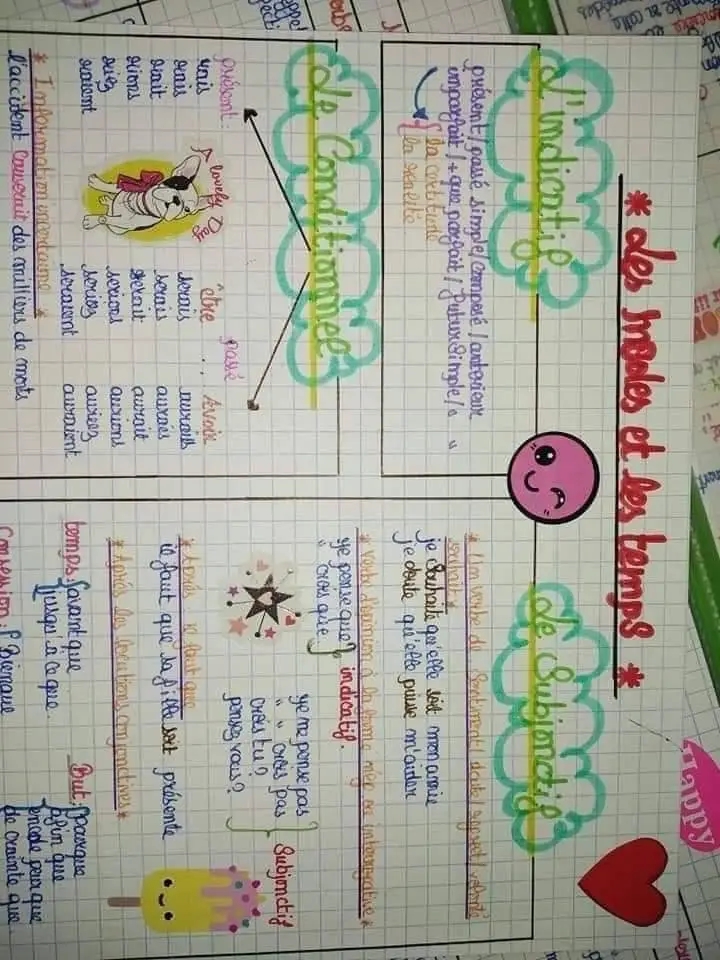 * Les modes et les temps *
L'indicatif
présent/passé simple/composé/antérieur
imparfait/+ que parfait/futur simple/" "
{ la certitude
{ la réalité
Le Conditionnel
présent:
rais
rais
rait
rions
riez
raient
A lovely Day
passé
être .. Avoir
serais aurais
serais aurais
serait aurait
serions aurions
seriez auriez
seraient auraient
* Information incertaine *
L'accident causerait des milliers de morts.
Le Subjonctif
* Un verbe de sentiment/doute/regret/volonté
souhait *
je souhaite qu'elle soit mon amie
je doute qu'elle puisse m'aider
* Verbe d'opinion à la forme nég ou interrogative *
je pense que } indicatif.
" crois que
je ne pense pas
" " crois pas
crois tu ?
pensez vous ?
} Subjonctif
* Après il faut que
il faut que sa fille soit présente
* Après les locutions conjonctives *
temps: { avant que
jusqu'à ce que.
But: { pour que
afin que
de crainte que
Concession: { Bien que
Happy